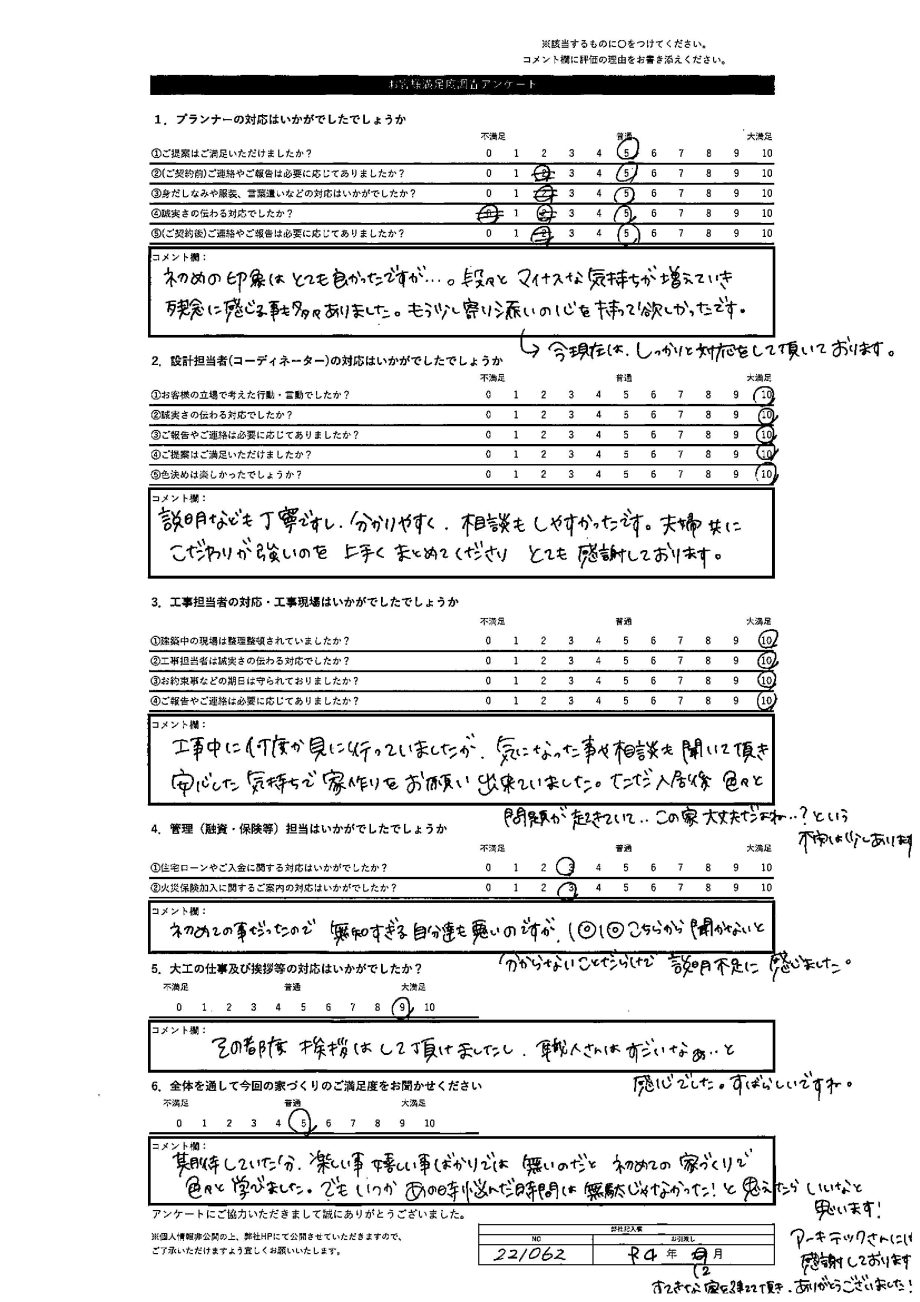 ※該当するものに〇をつけてください。
コメント欄に評価の理由をお書き添えください。
お客様満足度調査アンケート
1．プランナーの対応はいかがでしたでしょうか
不満足 普通 大満足
①ご提案はご満足いただけましたか？ 0 1 2 3 4 5 6 7 8 9 10
②(ご契約前)ご連絡やご報告は必要に応じてありましたか？ 0 1 2 3 4 5 6 7 8 9 10
③身だしなみや服装、言葉遣いなどの対応はいかがでしたか？ 0 1 2 3 4 5 6 7 8 9 10
④誠実さの伝わる対応でしたか？ 0 1 2 3 4 5 6 7 8 9 10
⑤(ご契約後)ご連絡やご報告は必要に応じてありましたか？ 0 1 2 3 4 5 6 7 8 9 10
コメント欄：
初めの印象はとても良かったですが…。段々とマイナスな気持ちが増えていき
残念に感じる事も多々ありました。もう少し寄り添いの心を持って欲しかったです。
→今現在は、しっかりと対応をして頂いております。
2．設計担当者(コーディネーター)の対応はいかがでしたでしょうか
不満足 普通 大満足
①お客様の立場で考えた行動・言動でしたか？ 0 1 2 3 4 5 6 7 8 9 10
②誠実さの伝わる対応でしたか？ 0 1 2 3 4 5 6 7 8 9 10
③ご報告やご連絡は必要に応じてありましたか？ 0 1 2 3 4 5 6 7 8 9 10
④ご提案はご満足いただけましたか？ 0 1 2 3 4 5 6 7 8 9 10
⑤色決めは楽しかったでしょうか？ 0 1 2 3 4 5 6 7 8 9 10
コメント欄：
説明なども丁寧ですし、分かりやすく、相談もしやすかったです。夫婦共に
こだわりが強いのを上手くまとめてくださりとても感謝しております。
3．工事担当者の対応・工事現場はいかがでしたでしょうか
不満足 普通 大満足
①建築中の現場は整理整頓されていましたか？ 0 1 2 3 4 5 6 7 8 9 10
②工事担当者は誠実さの伝わる対応でしたか？ 0 1 2 3 4 5 6 7 8 9 10
③お約束事などの期日は守られておりましたか？ 0 1 2 3 4 5 6 7 8 9 10
④ご報告やご連絡は必要に応じてありましたか？ 0 1 2 3 4 5 6 7 8 9 10
コメント欄：
工事中に何度か見に行っていましたが、気になった事や相談も聞いて頂き
安心した気持ちで家作りをお願い出来ていました。ただ入居後色々と
問題が起きていて‥この家大丈夫だよね‥？という
不安は少しあります
4．管理（融資・保険等）担当はいかがでしたでしょうか
不満足 普通 大満足
①住宅ローンやご入金に関する対応はいかがでしたか？ 0 1 2 3 4 5 6 7 8 9 10
②火災保険加入に関するご案内の対応はいかがでしたか？ 0 1 2 3 4 5 6 7 8 9 10
コメント欄：
初めての事だったので無知すぎる自分達も悪いのですが、こちらから聞かないと
分からないことだらけで説明不足に感じました。
5．大工の仕事及び挨拶等の対応はいかがでしたか？
不満足 普通 大満足
0 1 2 3 4 5 6 7 8 9 10
コメント欄：
その都度挨拶はして頂けましたし、職人さんはすごいなぁ‥と
感心でした。すばらしいですね。
6．全体を通して今回の家づくりのご満足度をお聞かせください
不満足 普通 大満足
0 1 2 3 4 5 6 7 8 9 10
コメント欄：
期待していた分、楽しい事嬉しい事ばかりでは無いのだと初めての家づくりで
色々と学びました。でもいつかあの時悩んだ時間は無駄じゃなかった！と思えたらいいなと
思います！
アーキテックさんには
感謝しております
すてきな家を建てて頂き、ありがとうございました！
アンケートにご協力いただきまして誠にありがとうございました。
※個人情報非公開の上、弊社HPにて公開させていただきますので、
ご了承いただけますよう宜しくお願いいたします。
弊社記入欄
NO お引渡し
221062 R4年 12月